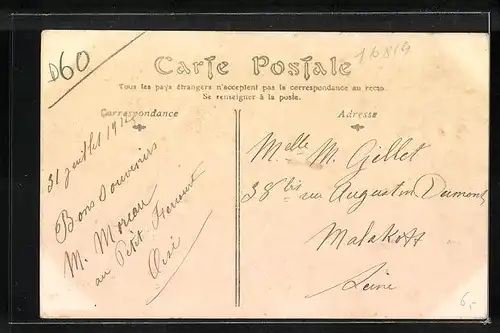 D60
16819
Carte Postale
Tous les pays étrangers n'acceptent pas la correspondance au recto.
Se renseigner à la poste.
Correspondance
Adresse
31 juillet 191
Bons Souvenirs
M. Moreau
au Petit
Oise
Melle M. Gellet
38 bis rue Augustin Dumont
Malakoff
Seine
6,-